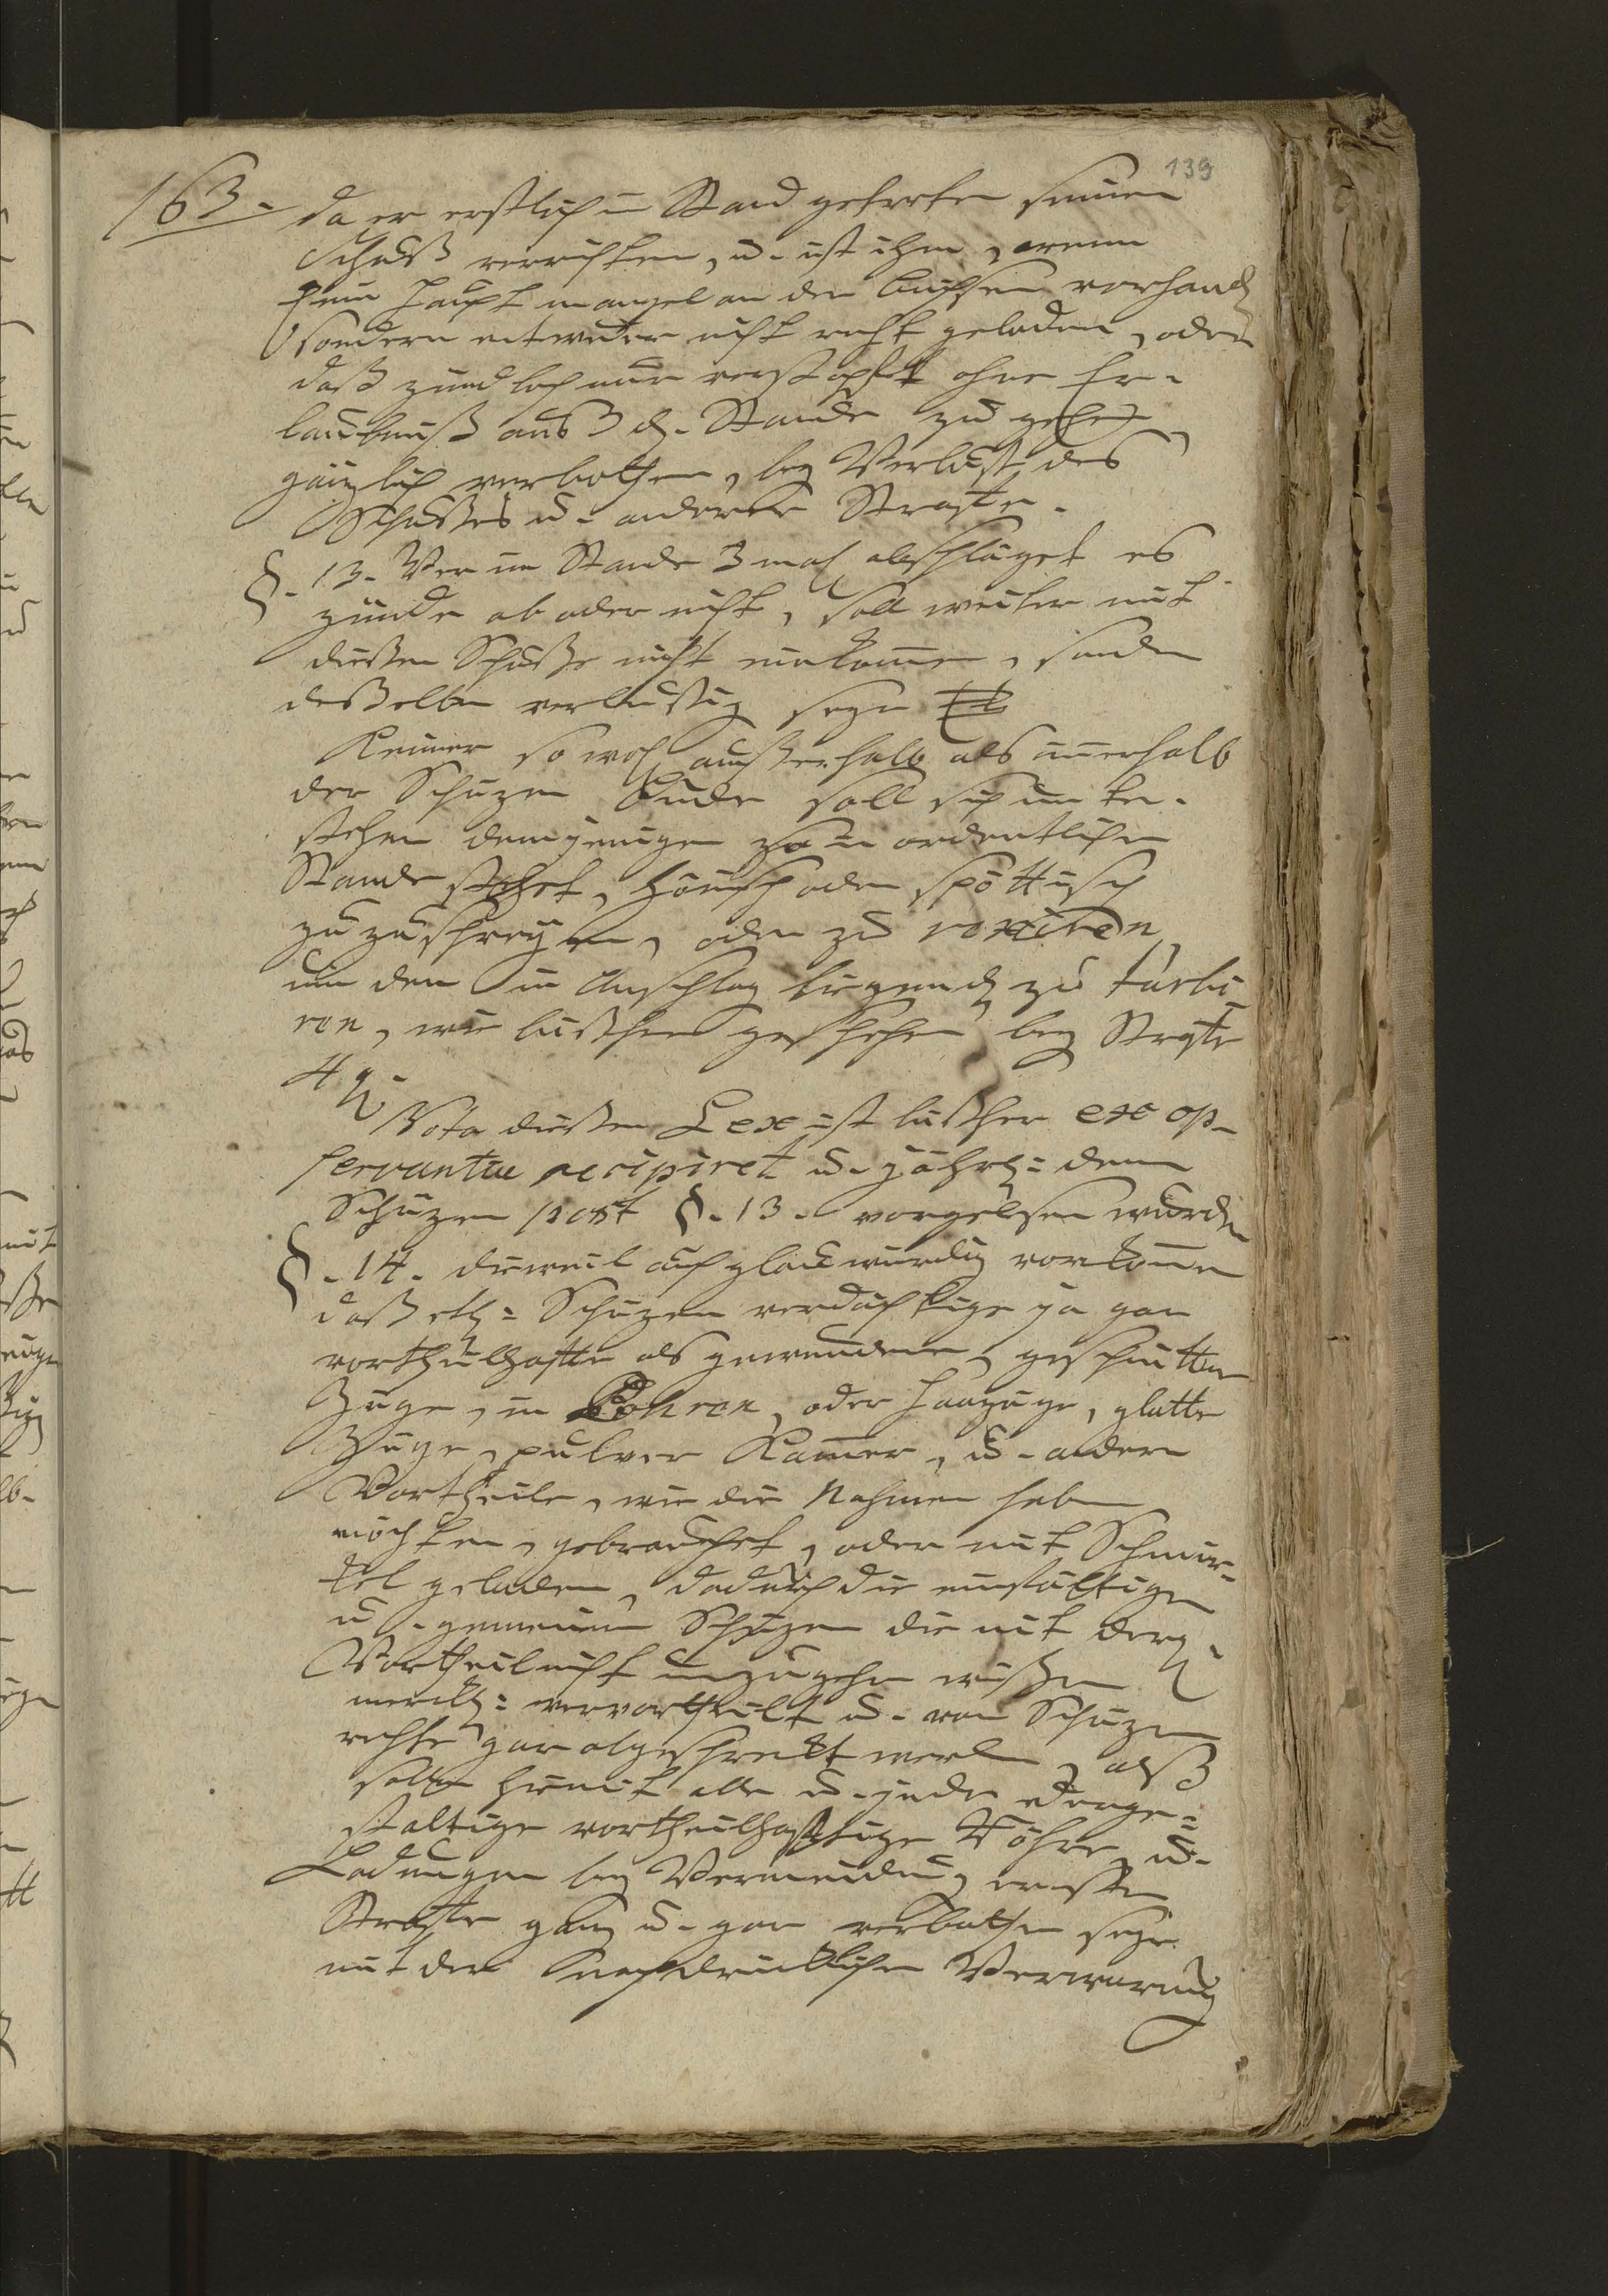 139
163. da er erstlich in Stand getretten seinen
Schuß verrichten, u. ist ihm, wenn
kein Haupt mangel an der Büchsen vorhand
sondern entweder nicht recht geladen, oder
daß zündloch nur verstopfet ohne Er-
laubnuß aus d. Stande zu gehen
gänzlich verbothen, bey Verlust des
Schußes u. anderer Straffe.
§. 13. Wer im Stande 3 mahl abschläget es
zünde ab oder nicht, soll weiter mit
dießen Schuße nicht einkommen, sondern
deßelben verlustig seyn
Keiner so wohl außerhalb als innerhalb
der Schüzen Bude soll sich unter-
stehen demjenigen so in ordentlichen
Stande stehet, hönisch oder spöttisch
zu zu schreyen, oder zu vexiren,
um den in Anschlag liegend zu turbi
ren, wie bißher geschehen bey Straffe
4 g.
Nota dießer Lex ist bißher ex op-
servantia recipiret u. jährl: denn
Schüzen post §. 13. vorgelesen wurden
§. 14. dieweil auch glaubwürdig vorkommen
daß etl: Schüzen verdächtige ja gar
vortheilhaffte als gewundene, geschnittene
Züge, in Röhren, oder Haarzüge, glatte
Züge, pulver Kammer, u. andere
Vortheile, wie die Nahmen haben
möchten, gebrauchet, oder mit Schmir-
kel geladen, dadurch die einfältigen
u. gemeinen Schüzen die mit derg.
Vortheil nicht umzugehen wißen
merckl: vervortheilt u. vom Schüzen
rechte gar abgeschreckt werden, alß
sollen hiemit alle u. jede derge-
staltige vortheilhafftige Röhre, u.
Ladungen bey Vermeidung ernsten
Straffe ganz u. gar verbothen seyn
mit der nachdrücklichen Verwarnung